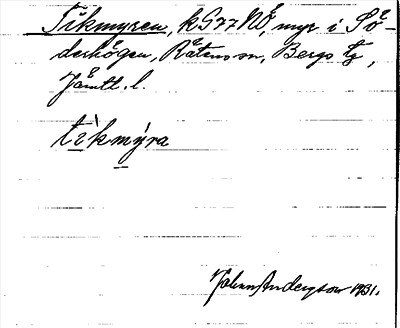 Tikmyren, k577NÖ, myr i Sö-
derhögen, Rätans sn, Bergs tg,
Jämtl. l.
tìkmýra
Johan Anderson 1931.